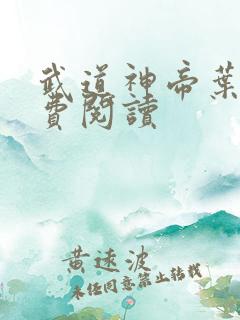 武道神帝葉
費閱讀
黃逺波
未经同意禁止转载